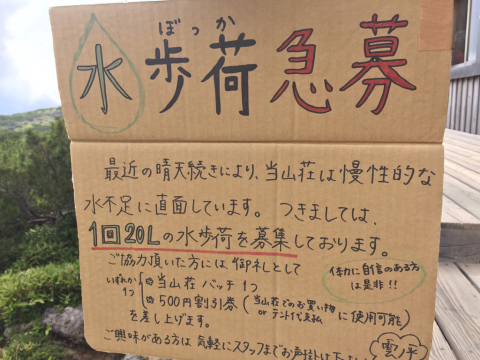 ぼっか
水歩荷急募
最近の晴天続きにより、当山荘は慢性的な
水不足に直面しています。つきましては、
1回20Lの水歩荷を募集しております。
ご協力頂いた方には、御礼として
いずれか1つ
当山荘バッチ1つ
500円割引券(当山荘でのお買い物orテント代支払に使用可能)
を差し上げます。
ご興味がある方は気軽にスタッフまでお声掛け
体力に自信のある方
は是非!!
雲ノ平